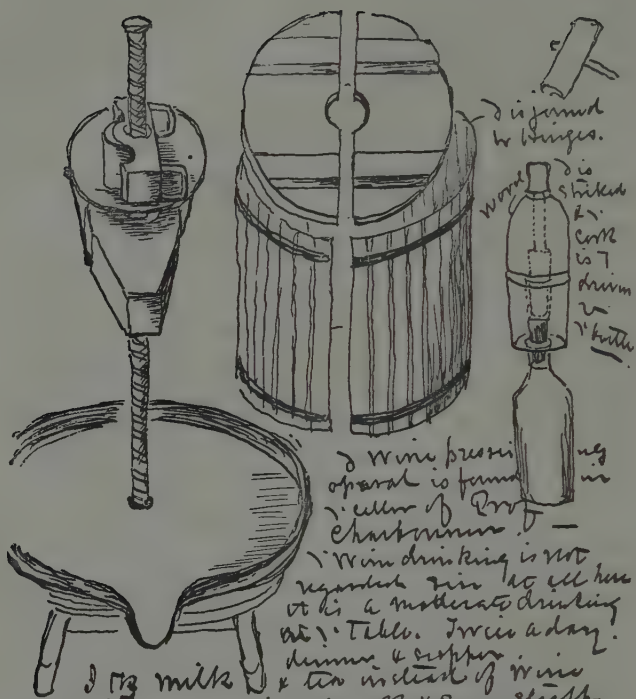 is joined
by hinges.
wood
is
striked
&
cork
is
driven
Wine pressing
aparat is found in
cellar of Prof
Charbonnier
Wine drinking is not
regarded sin at all here
it is a motterate drinking
at Table. Twice a day.
dinner & supper
I milk & tea instead of wine